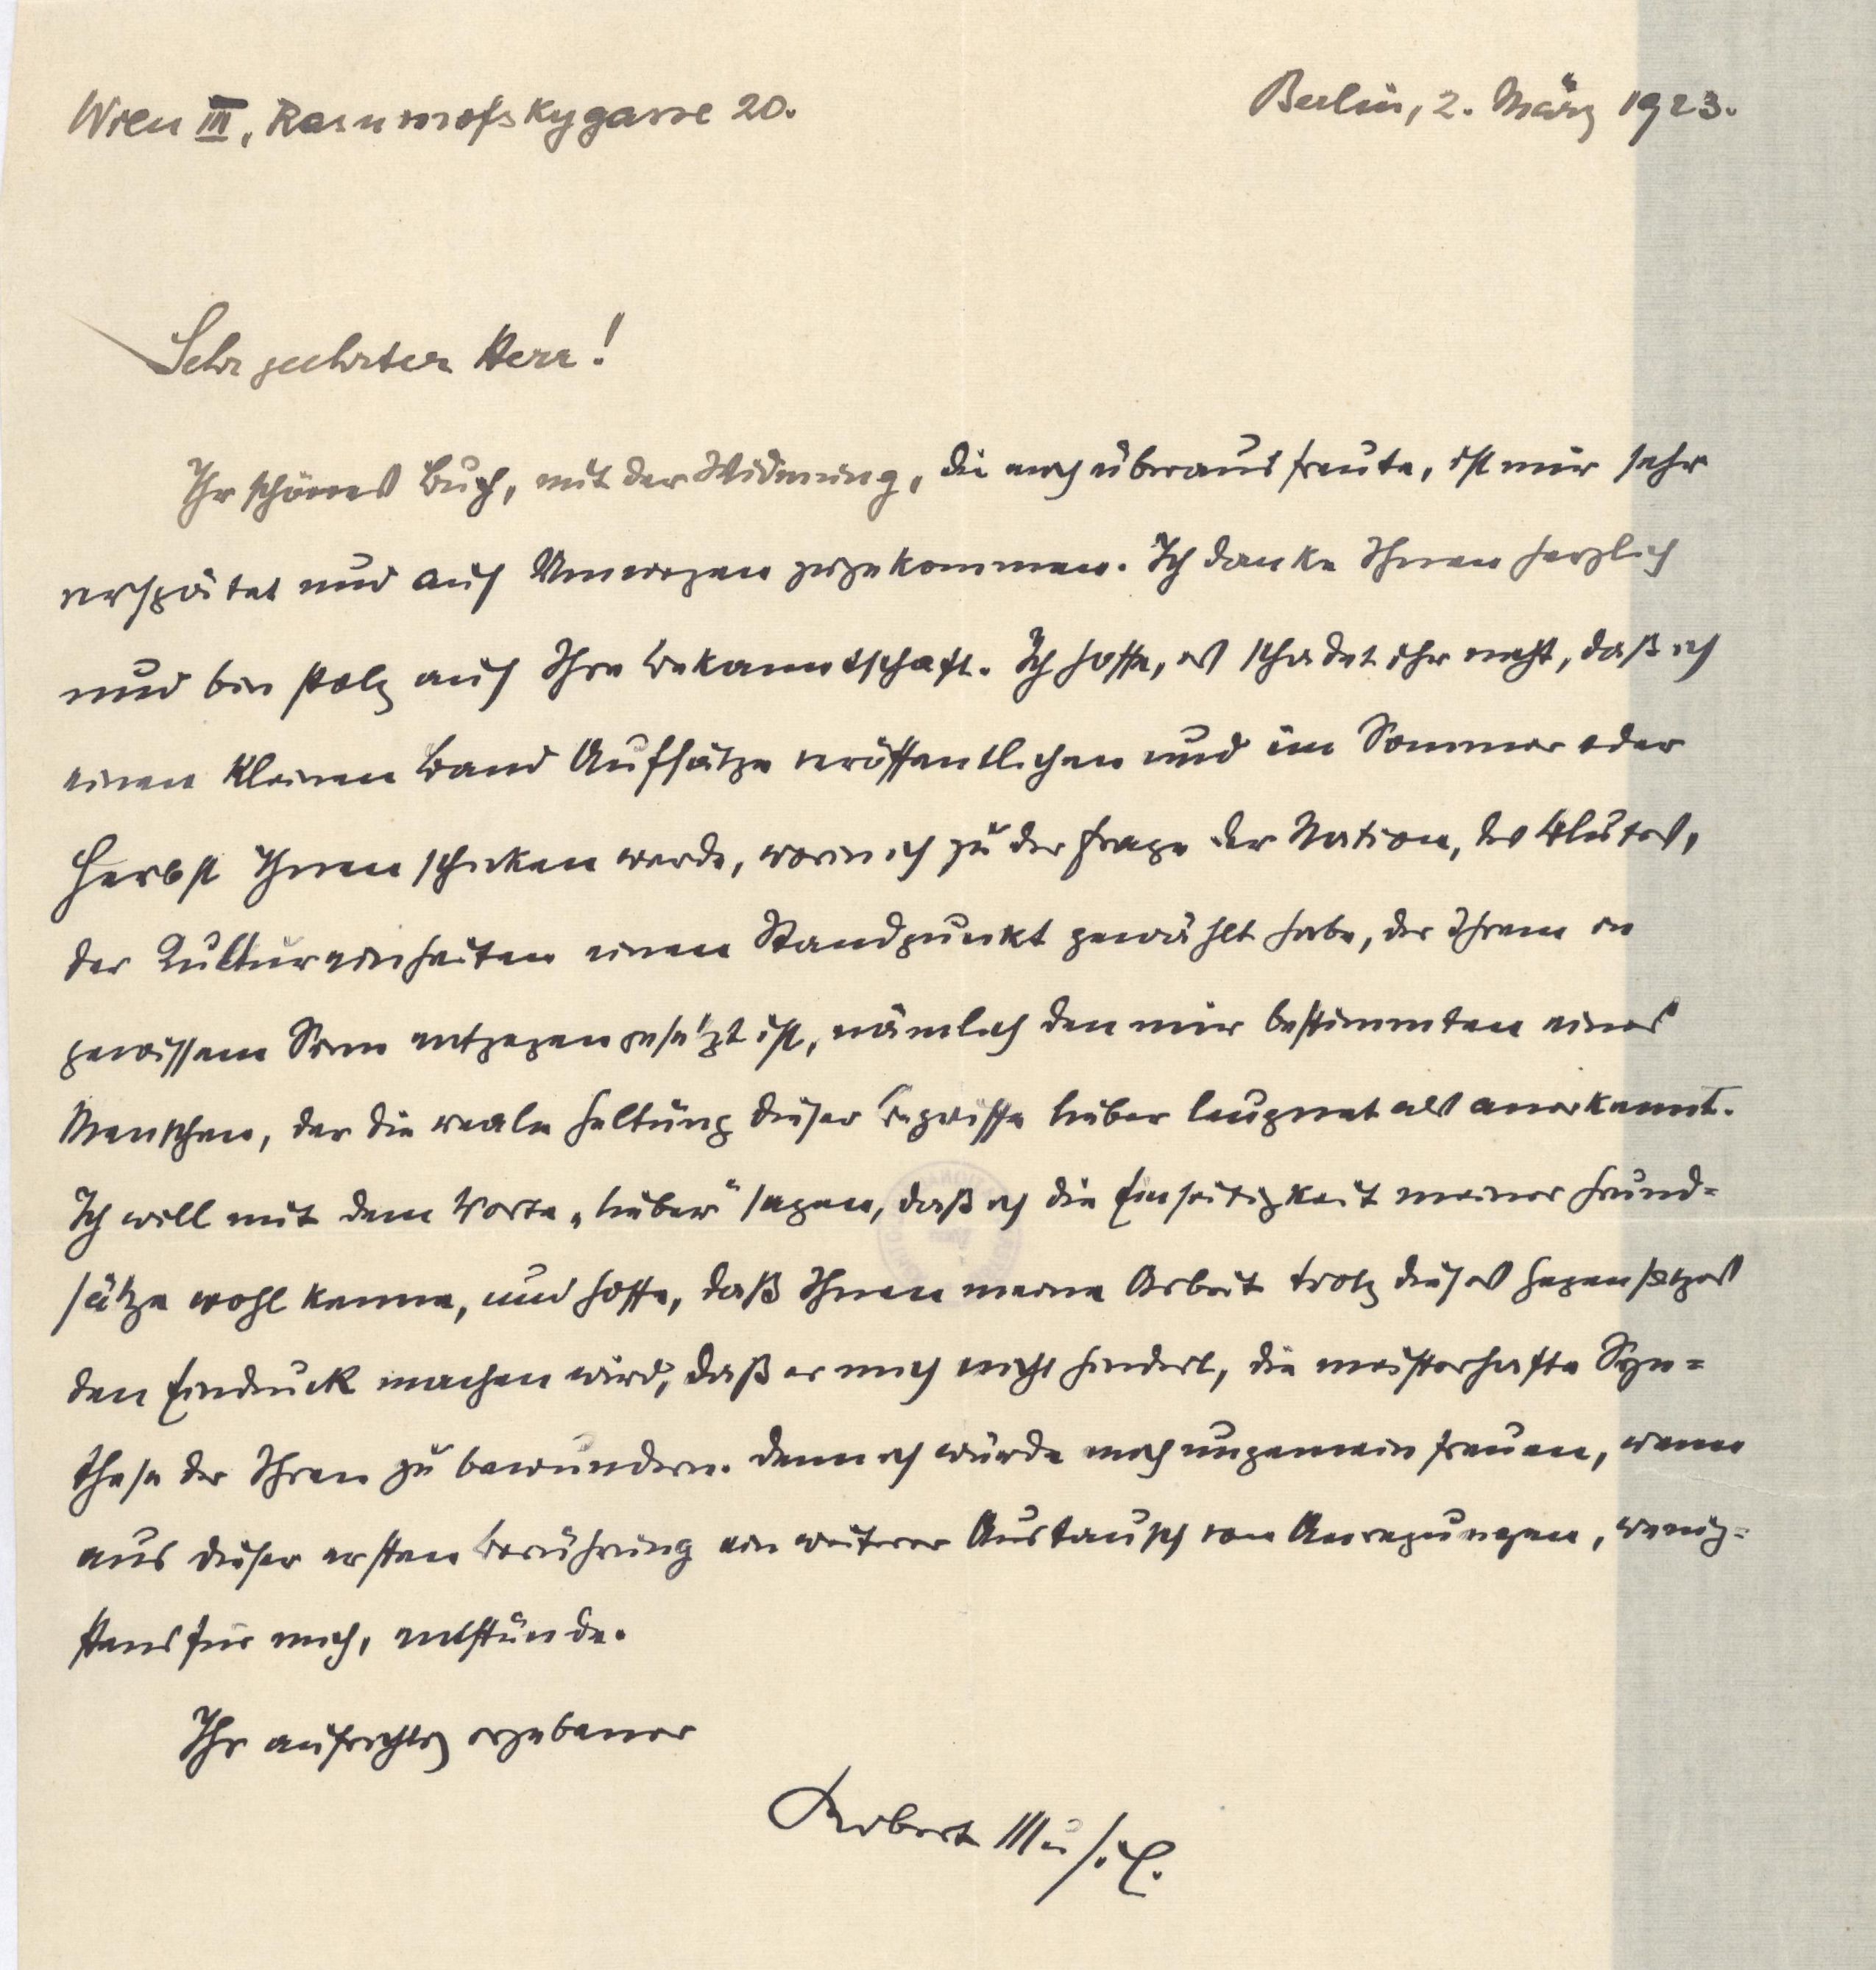 Wien III, Rasumofskygasse 20.
Berlin, 2. März 1923.
Sehr geehrter Herr!
Ihr schönes Buch, mit der Widmung, die mich überaus freute, ist mir sehr
verspätet und auf Umwegen zugekommen. Ich danke Ihnen herzlich
und bin stolz auf Ihre Bekanntschaft. Ich hoffe, es schadet ihr nicht, daß ich
einen kleinen Band Aufsätze veröffentlichen und im Sommer oder
Herbst Ihnen schicken werde, worin ich zu der Frage der Nation, des Blutes,
der Kultureinheiten einen Standpunkt gewählt habe, der Ihrem in
gewissem Sinn entgegengesetzt ist, nämlich den mir bestimmten eines
Menschen, der die reale Geltung dieser Begriffe lieber leugnet als anerkennt.
Ich will mit dem Worte „lieber" sagen, daß ich die Einseitigkeit meiner Grund-
sätze wohl kenne, und hoffe, daß Ihnen meine Arbeit trotz dieses Gegensatzes
den Eindruck machen wird, daß er mich nicht hindert, die meisterhafte Syn-
these der Ihren zu bewundern. Denn ich würde mich ungemein freuen, wenn
aus dieser ersten Berührung ein weiterer Austausch von Anregungen, wenig-
stens für mich, entstünde.
Ihr aufrichtig ergebener
Robert Musil.